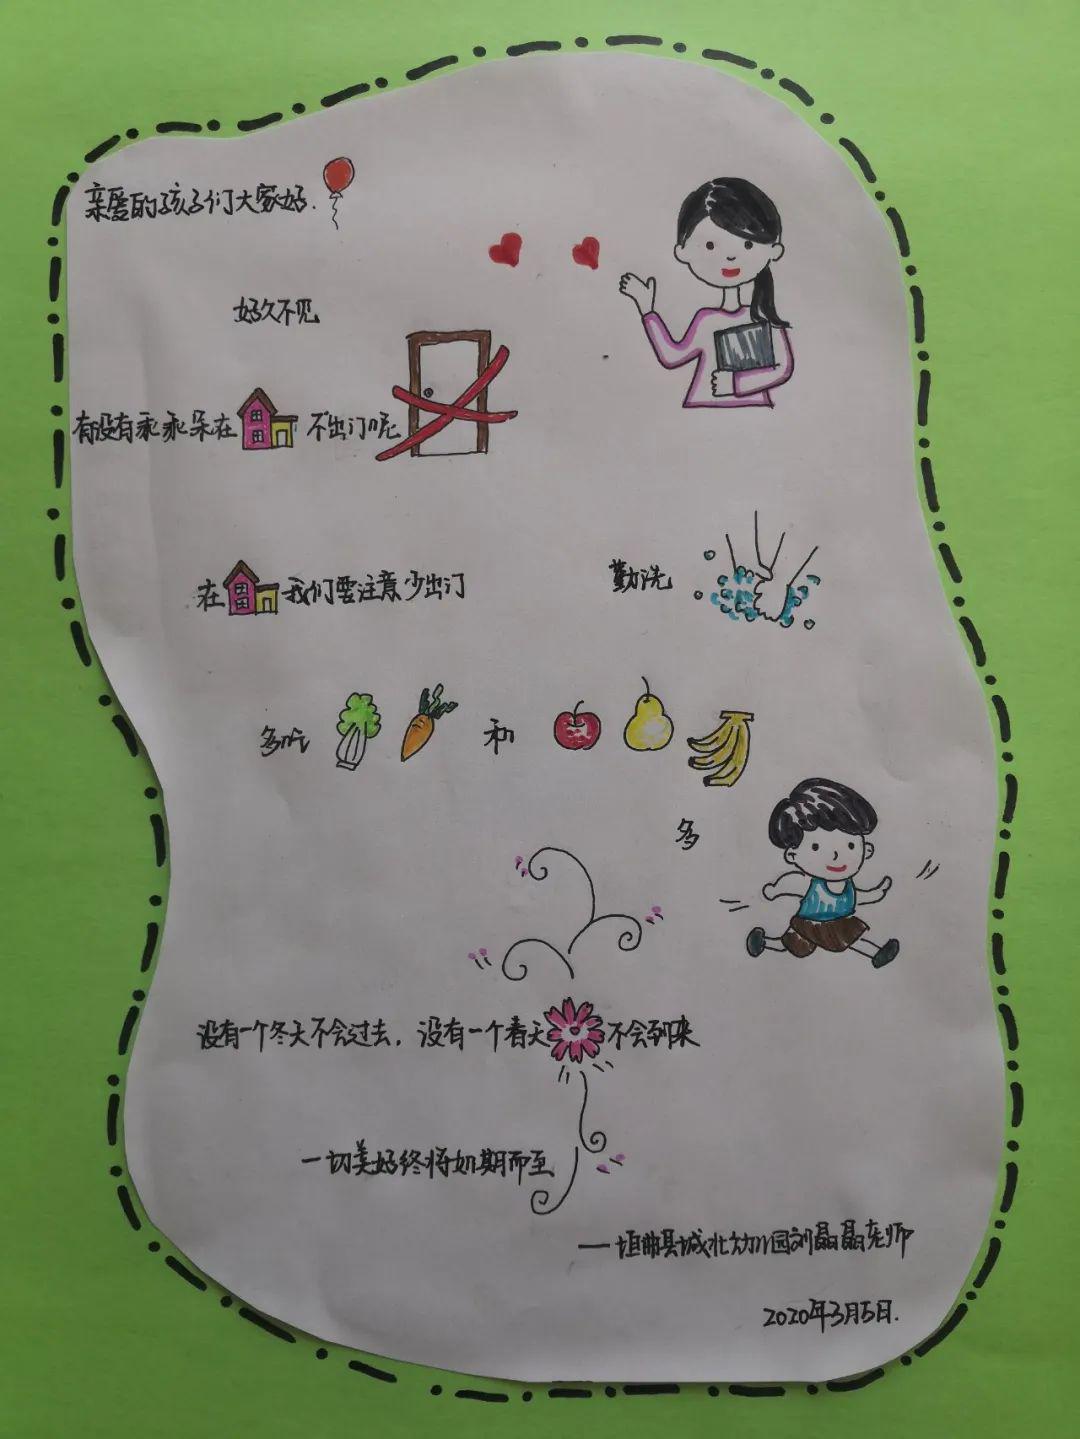 亲爱的孩子们大家好.
好久不见
有没有乖乖呆在 不出门呢
在 我们要注意少出门 勤洗
多吃 和
多
没有一个冬天不会过去，没有一个春天 不会到来
一切美好终将如期而至
——垣曲县城北幼儿园刘晶晶老师
2020年3月5日.